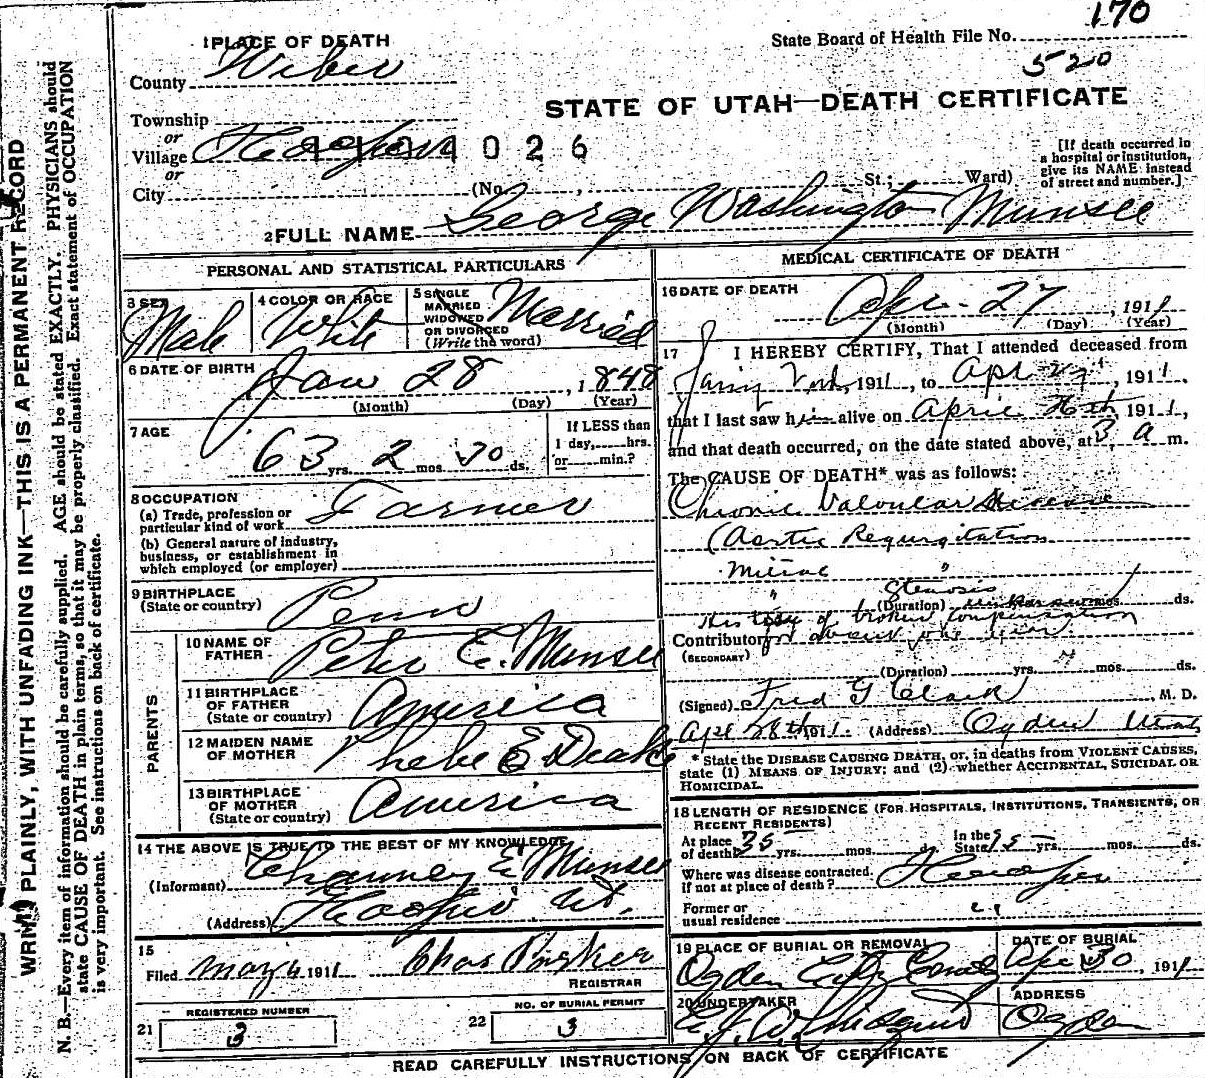 170
State Board of Health File No.
520
1 PLACE OF DEATH
County Weber
STATE OF UTAH—DEATH CERTIFICATE
Township
or
Village Hooper 026
or
City (No. , St.; Ward)
[If death occurred in
a hospital or institution,
give its NAME instead
of street and number.]
2 FULL NAME George Washington Munsee
PERSONAL AND STATISTICAL PARTICULARS
3 SEX Male
4 COLOR OR RACE White
5 SINGLE
MARRIED
WIDOWED
OR DIVORCED
(Write the word) Married
6 DATE OF BIRTH Jan 28, 1848
(Month) (Day) (Year)
7 AGE
63 yrs. 2 mos. 30 ds.
If LESS than
1 day, hrs.
or min.?
8 OCCUPATION
(a) Trade, profession or
particular kind of work Farmer
(b) General nature of industry,
business, or establishment in
which employed (or employer)
9 BIRTHPLACE
(State or country) Penn
PARENTS
10 NAME OF
FATHER Peter E. Munsee
11 BIRTHPLACE
OF FATHER
(State or country) America
12 MAIDEN NAME
OF MOTHER Phebe E Deake
13 BIRTHPLACE
OF MOTHER
(State or country) America
14 THE ABOVE IS TRUE TO THE BEST OF MY KNOWLEDGE
(Informant) Chauncy E Munsee
(Address) Hooper Ut.
15
Filed May 6 1911 Chas
REGISTRAR
REGISTERED NUMBER
21 3
NO. OF BURIAL PERMIT
22 3
MEDICAL CERTIFICATE OF DEATH
16 DATE OF DEATH
Apr. 27, 1911
(Month) (Day) (Year)
17 I HEREBY CERTIFY, That I attended deceased from
1911, to Apl 27, 1911.
that I last saw him alive on April 1911,
and that death occurred, on the date stated above, at 3 a m.
The CAUSE OF DEATH* was as follows:
Chronic Valvular Disease
(Aortic Regurgitation
Mitral "
" Stenosis
(Duration) mos. ds.
History of broken compensation
Contributory for about one year
(SECONDARY)
(Duration) yrs. mos. ds.
(Signed) Fred G Clark M. D.
Apl 28th 1911. (Address) Ogden Utah
* State the DISEASE CAUSING DEATH, or, in deaths from VIOLENT CAUSES,
state (1) MEANS OF INJURY; and (2) whether ACCIDENTAL, SUICIDAL OR
HOMICIDAL.
18 LENGTH OF RESIDENCE (FOR HOSPITALS, INSTITUTIONS, TRANSIENTS, OR
RECENT RESIDENTS)
At place
of death 35 yrs. mos. ds.
In the
State yrs. mos. ds.
Where was disease contracted,
if not at place of death? Hooper
Former or
usual residence "
19 PLACE OF BURIAL OR REMOVAL
Ogden City
DATE OF BURIAL
Apr 30, 1911
20 UNDERTAKER
ADDRESS
Ogden
READ CAREFULLY INSTRUCTIONS ON BACK OF CERTIFICATE
WRITE PLAINLY, WITH UNFADING INK—THIS IS A PERMANENT RECORD
N. B.—Every item of information should be carefully supplied. AGE should be stated EXACTLY. PHYSICIANS should
state CAUSE OF DEATH in plain terms, so that it may be properly classified. Exact statement of OCCUPATION
is very important. See instructions on back of certificate.